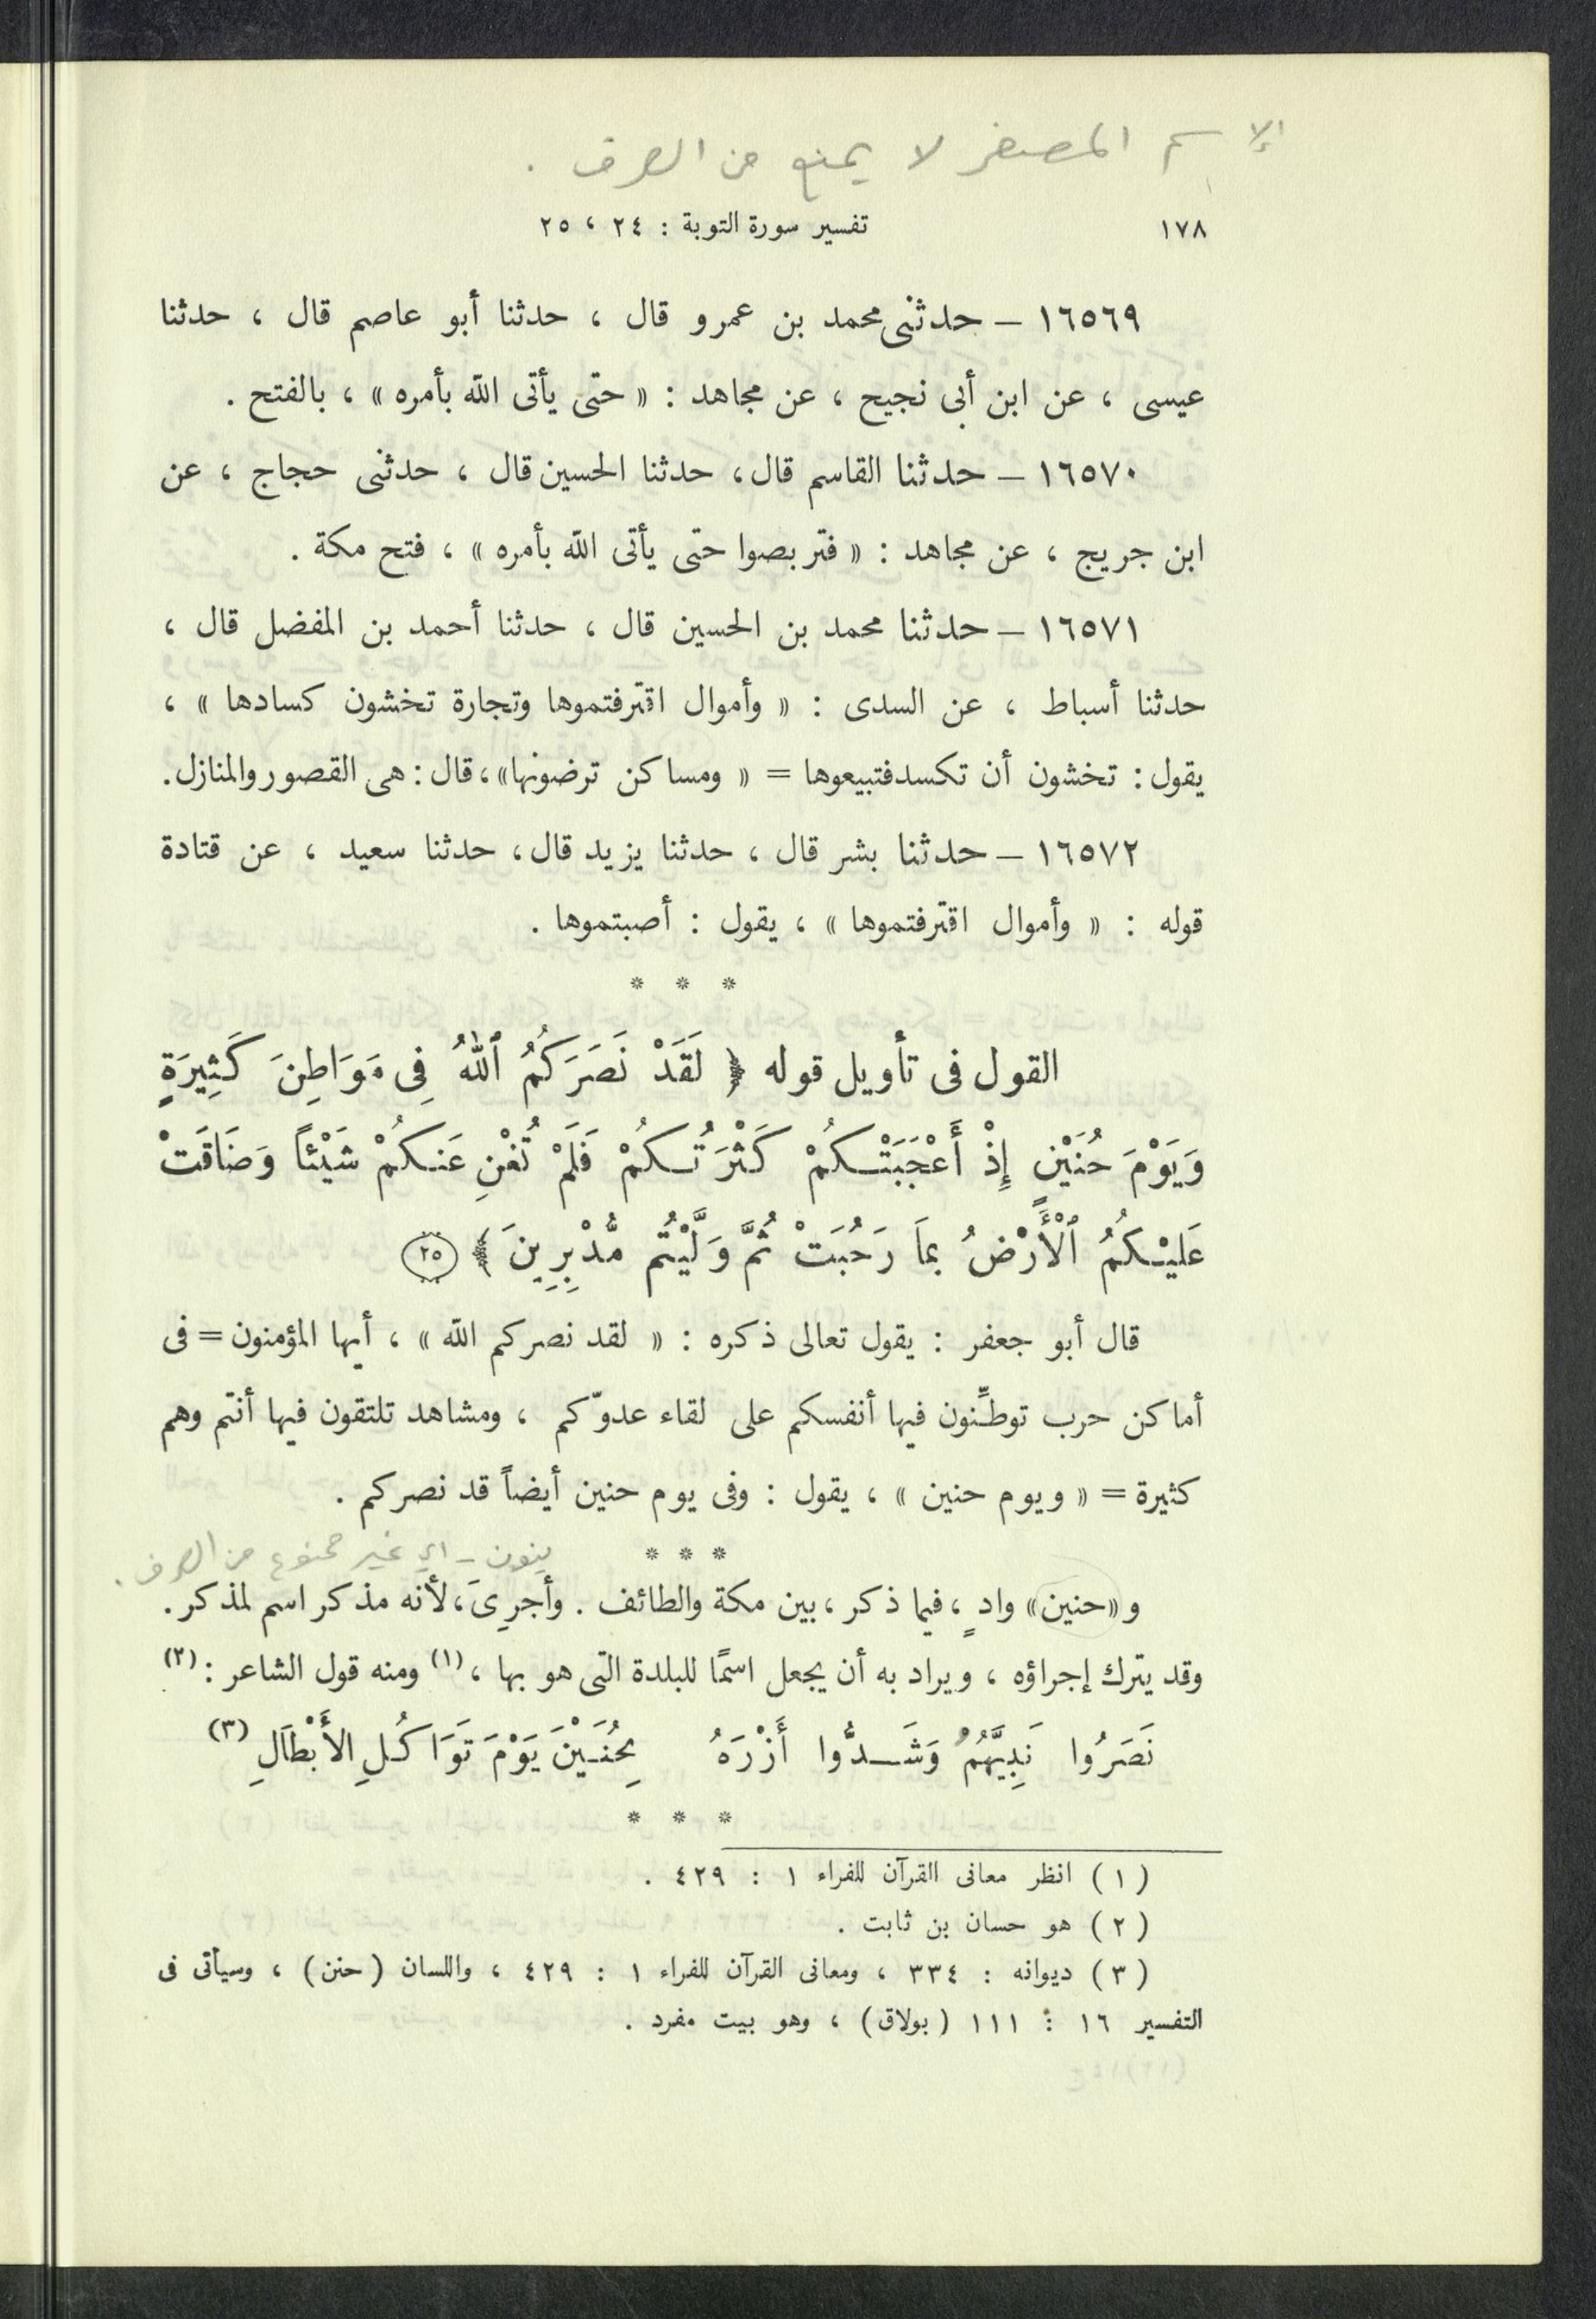 الإسم المصغر لا يمنع من الصرف .
١٧٨ تفسير سورة التوبة : ٢٤ ، ٢٥
١٦٥٦٩ – حدثنى محمد بن عمرو قال ، حدثنا أبو عاصم قال ، حدثنا
عيسى ، عن ابن أبى نجيح ، عن مجاهد : « حتى يأتى الله بأمره » ، بالفتح .
١٦٥٧٠ – حدثنا القاسم قال ، حدثنا الحسين قال ، حدثنى حجاج ، عن
ابن جريج ، عن مجاهد : « فتربصوا حتى يأتى الله بأمره » ، فتح مكة .
١٦٥٧١ – حدثنا محمد بن الحسين قال ، حدثنا أحمد بن المفضل قال ،
حدثنا أسباط ، عن السدى : « وأموال اقترفتموها وتجارة تخشون كسادها » ،
يقول : تخشون أن تكسدفتبيعوها = « ومساكن ترضونها» ، قال : هى القصور والمنازل.
١٦٥٧٢ – حدثنا بشر قال ، حدثنا يزيد قال ، حدثنا سعيد ، عن قتادة
قوله : « وأموال اقترفتموها » ، يقول : أصبتموها .
* * *
القول فى تأويل قوله ﴿ لَقَدْ نَصَرَكُمُ ٱللهُ فِى مَوَاطِنَ كَثِيرَةٍ
وَيَوْمَ حُنَيْنٍ إِذْ أَعْجَبَتْكُمْ كَثْرَتُكُمْ فَلَمْ تُغْنِ عَنكُمْ شَيْئاً وَضَاقَتْ
عَلَيْكُمُ ٱلْأَرْضُ بِمَا رَحُبَتْ ثُمَّ وَلَّيْتُم مُّدْبِرِينَ ﴾ ٢٥
قال أبو جعفر : يقول تعالى ذكره : « لقد نصركم الله » ، أيها المؤمنون = فى
أماكن حرب توطِّنون فيها أنفسكم على لقاء عدوّكم ، ومشاهد تلتقون فيها أنتم وهم
كثيرة = « ويوم حنين » ، يقول : وفى يوم حنين أيضاً قد نصركم .
* * *
ينون – اي غير ممنوع من الصرف .
و «حنين» وادٍ ، فيما ذكر ، بين مكة والطائف . وأجرِىَ ، لأنه مذكر اسم لمذكر .
وقد يترك إجراؤه ، ويراد به أن يجعل اسمًا للبلدة التى هو بها ، (١) ومنه قول الشاعر : (٢)
نَصَرُوا نَبِيَّهُمُ وَشَدُّوا أَزْرَهُ بِحُنَيْنَ يَوْمَ تَوَاكُلِ الأَبْطَالِ (٣)
* * *
( ١ ) انظر معانى القرآن للفراء ١ : ٤٢٩ .
( ٢ ) هو حسان بن ثابت .
( ٣ ) ديوانه : ٣٣٤ ، ومعانى القرآن للفراء ١ : ٤٢٩ ، واللسان ( حنن ) ، وسيأتى فى
التفسير ١٦ : ١١١ ( بولاق ) ، وهو بيت مفرد .